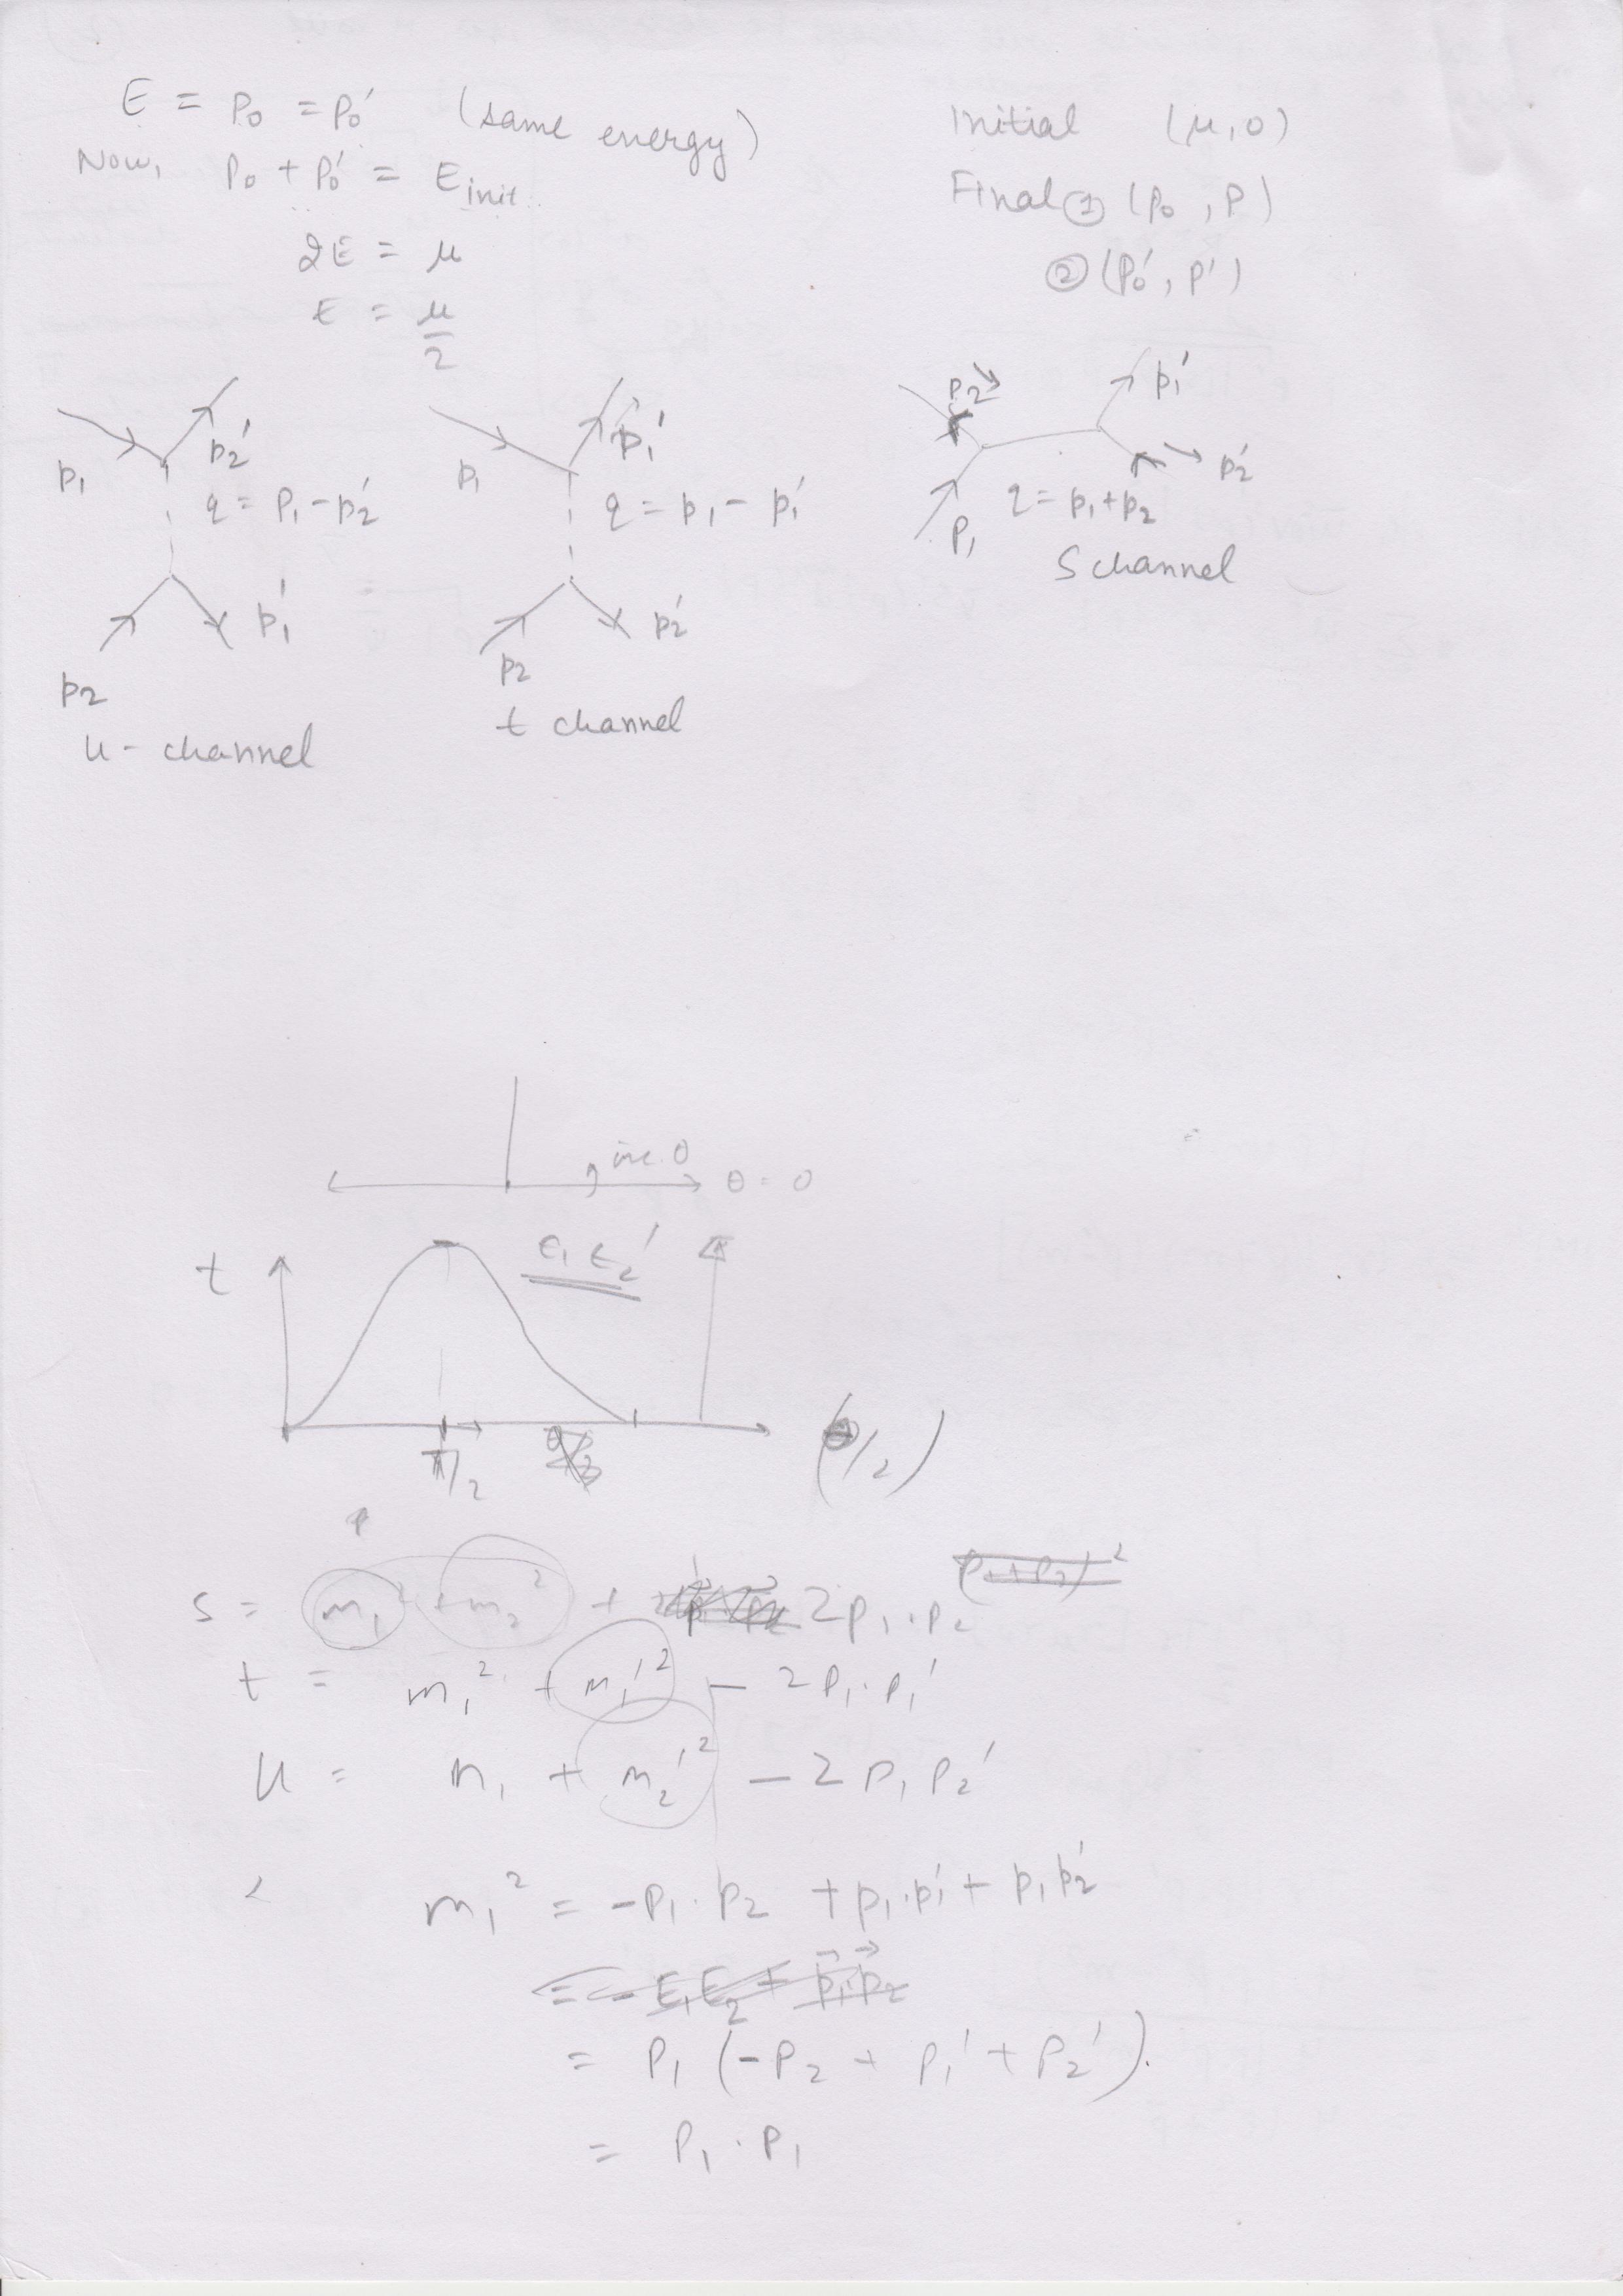 E = P₀ = P₀′ (same energy)
Now, P₀ + P₀′ = E init.
2E = μ
E = μ/2
Initial (μ, 0)
Final ① (P₀, P)
② (P₀′, P′)
p₁
p₂′
q = P₁ - p₂′
p₁′
p₂
u - channel
p₁
p₁′
q = p₁ - p₁′
p₂′
p₂
t channel
p₂
p₁′
p₂′
q = p₁ + p₂
P₁
S channel
inc. θ
θ = 0
t
E₁ E₂′
π/2
(θ/2)
s = m₁² + m₂² + 2p₁·p₂
t = m₁² + m₁′² - 2P₁·P₁′
u = m₁ + m₂′² - 2P₁P₂′
m₁² = -P₁·P₂ + p₁·p₁′ + p₁p₂′
= -E₁E₂ + p⃗₁·p⃗₂
= P₁ (-P₂ + P₁′ + P₂′).
= P₁·P₁